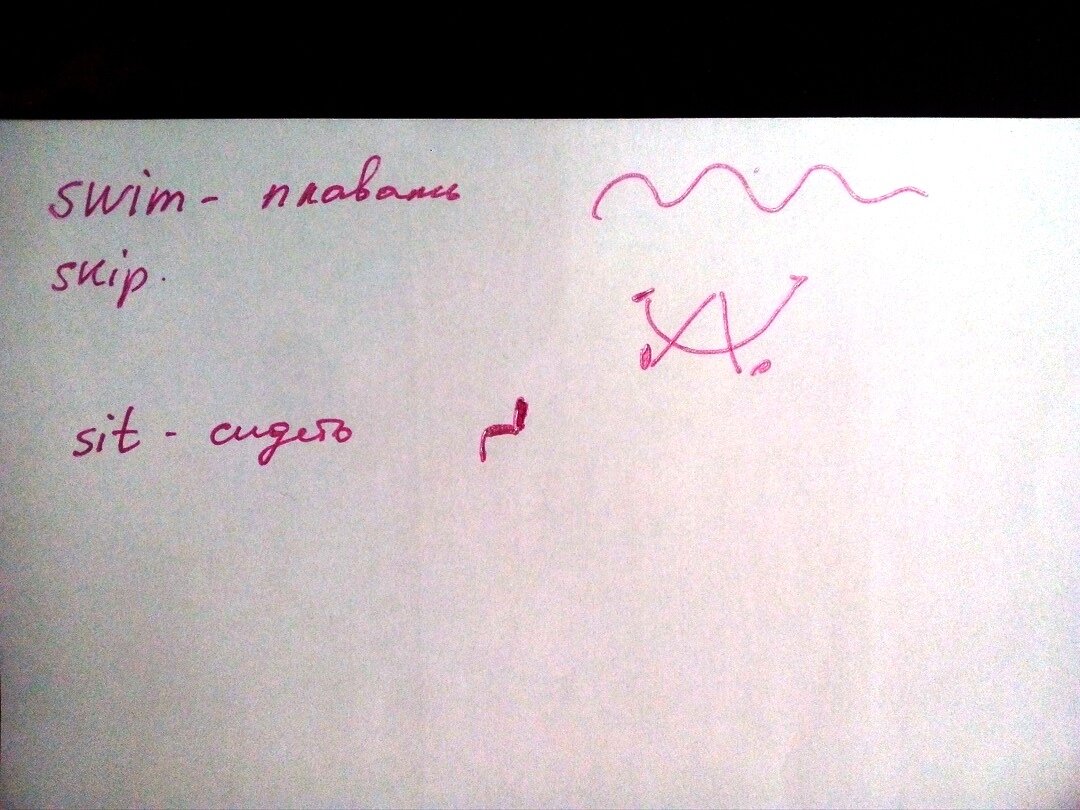 swim - плавать
skip.
sit - сидеть